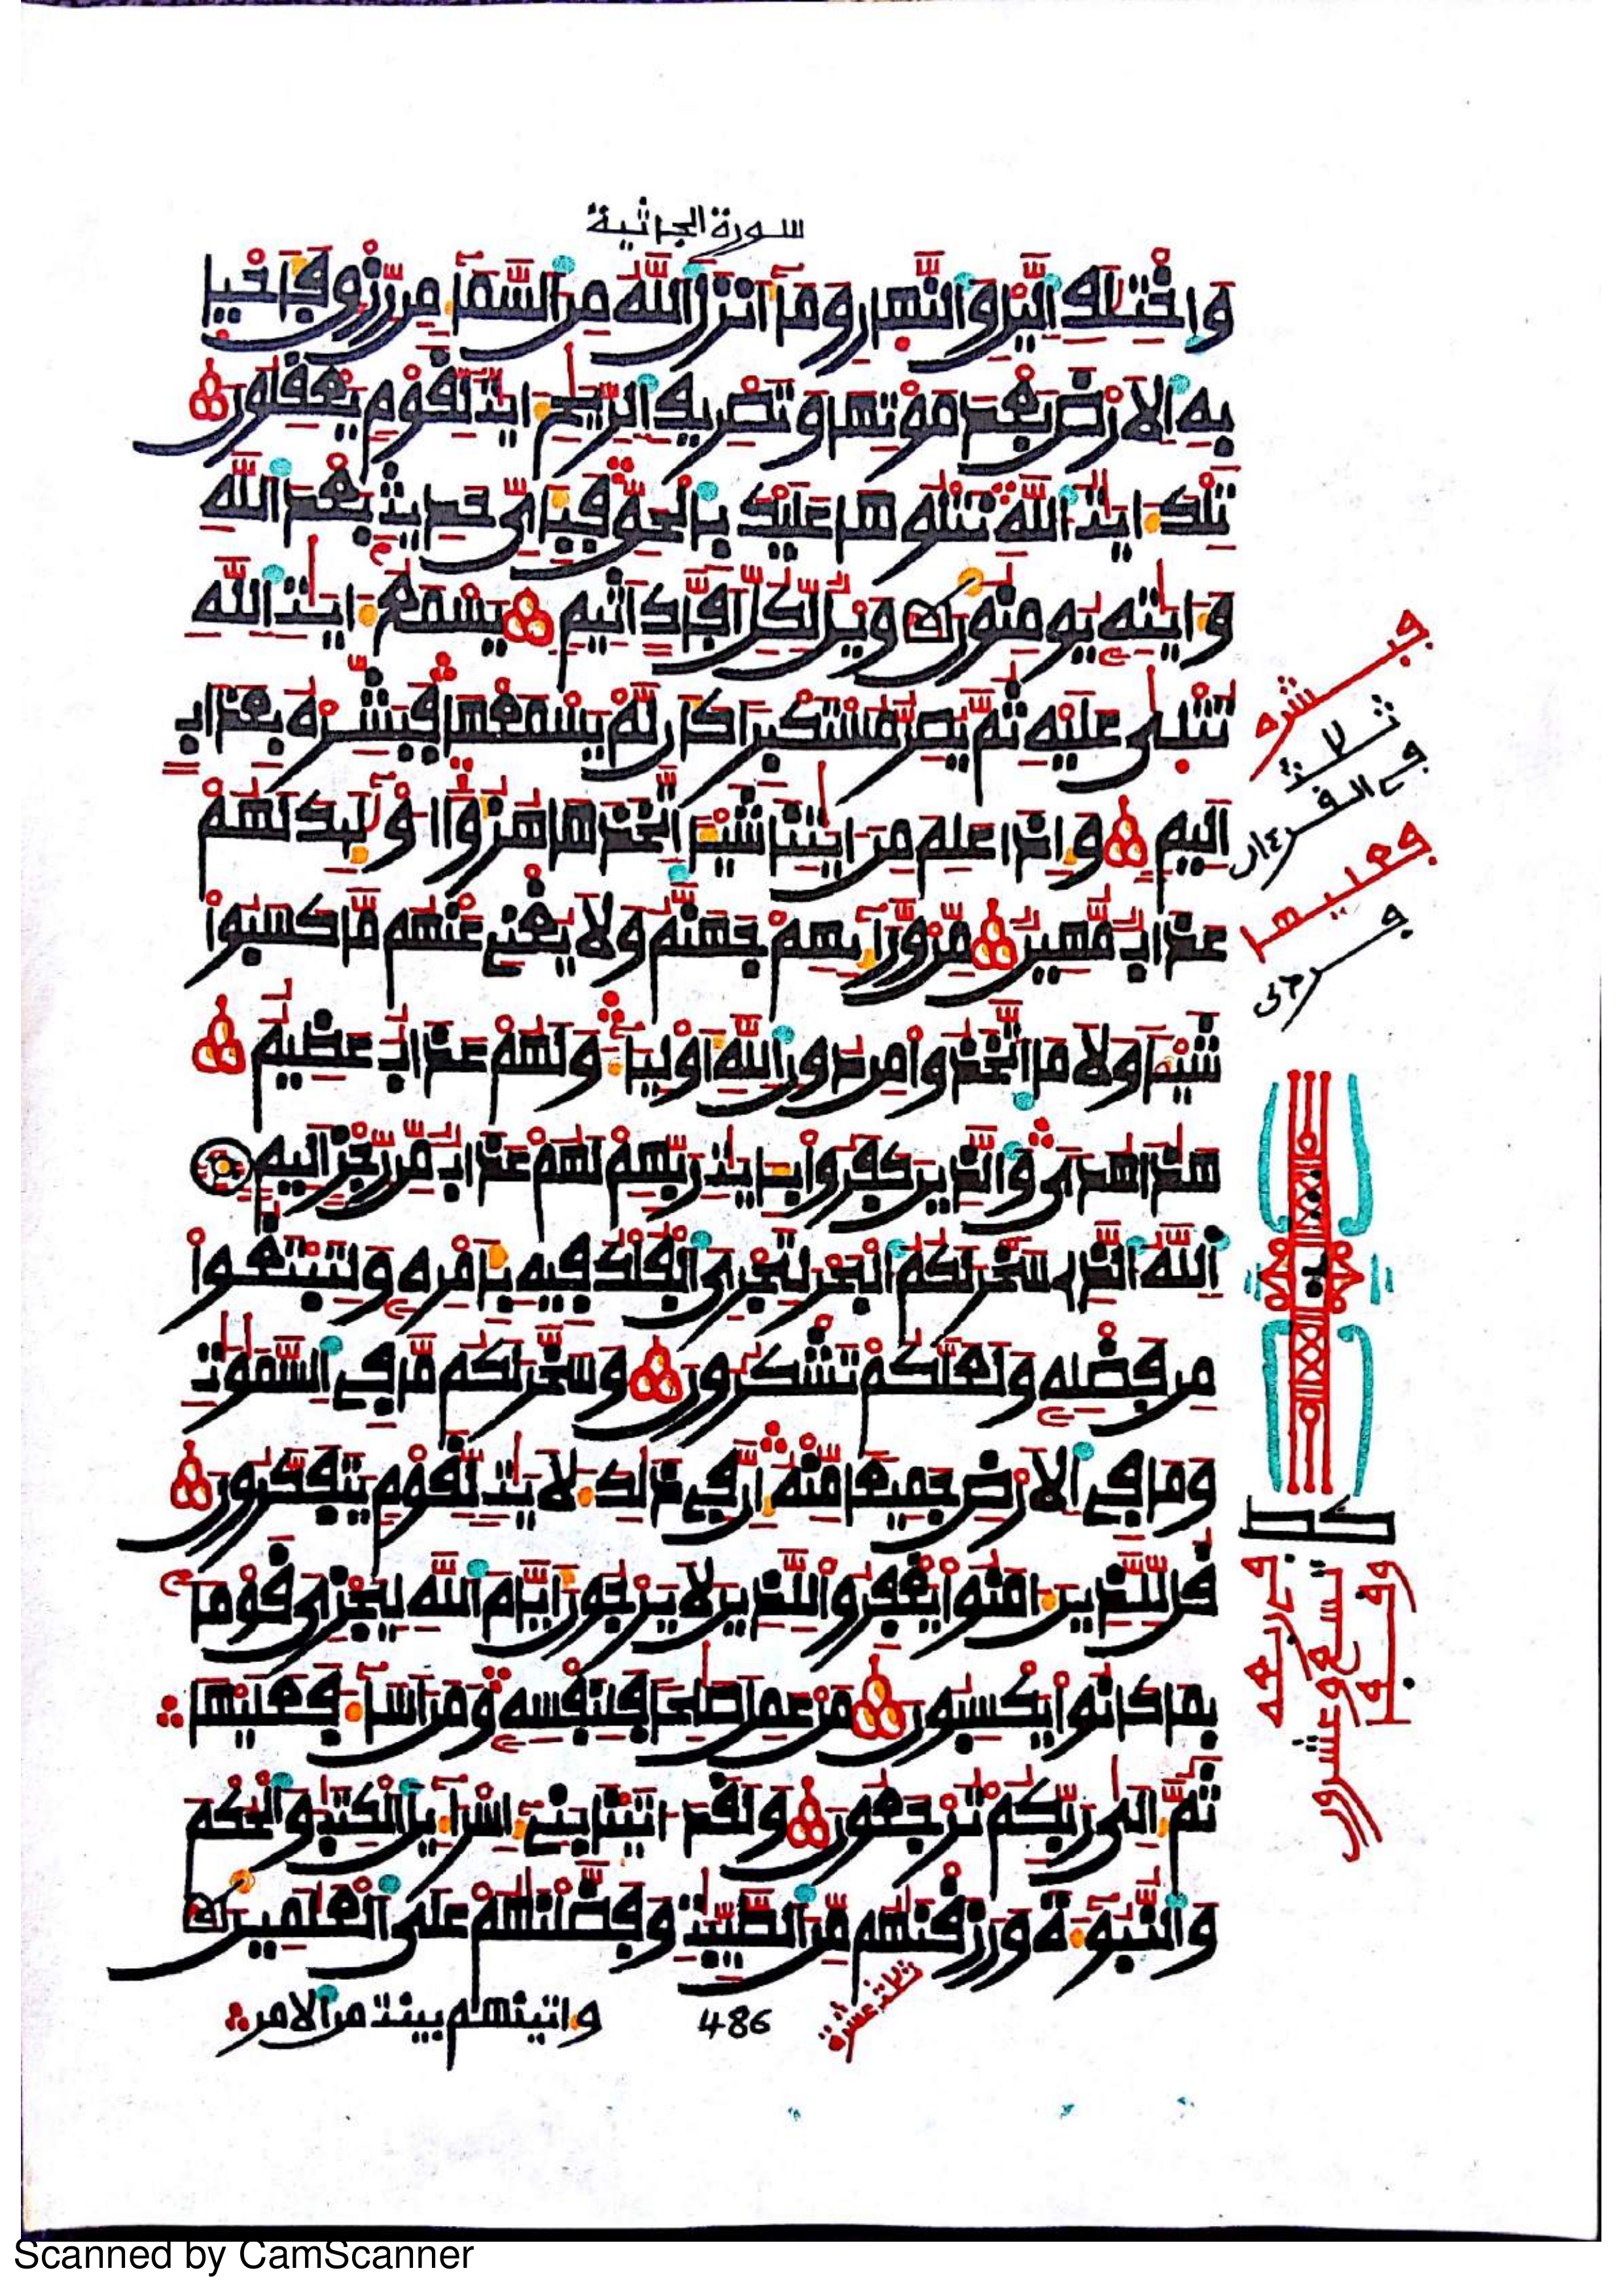 سورة الجاثية
وَاخْتِلَٰفِ اِليْلِ وَالنَّهارِ وَمَآ أَنزَلَ اَللَّهُ مِنَ اَلسَّمَآءِ مِن رِّزْقٍ فَأَحْيَا
بِهِ اِلَارْضَ بَعْدَ مَوْتِهَا وَتَصْرِيفِ اِلرِّيَٰحِ ءَايَٰتٌ لِّقَوْمٍ يَعْقِلُونَ
تِلْكَ ءَايَٰتُ اُللَّهِ نَتْلُوهَا عَلَيْكَ بِالْحَقِّ فَبِأَىِّ حَدِيثٍ بَعْدَ اَللَّهِ
وَءَايَٰتِهِ يُومِنُونَ وَيْلٌ لِّكُلِّ أَفَّاكٍ اَثِيمٍ يَسْمَعُ ءَايَٰتِ اِللَّهِ
تُتْلَىٰ عَلَيْهِ ثُمَّ يُصِرُّ مُسْتَكْبِراً كَأَن لَّمْ يَسْمَعْهَا فَبَشِّرْهُ بِعَذَابٍ
اَلِيمٍ وَإِذَا عَلِمَ مِنَ ايَٰتِنَا شَيْـًٔا اِتَّخَذَهَا هُزُؤًا اُوْلَٰٓئِكَ لَهُمْ
عَذَابٌ مُّهِينٌ مِّنْ وَّرَآئِهِمْ جَهَنَّمُ وَلَا يُغْنِے عَنْهُم مَّا كَسَبُواْ
شَيْـًٔا وَلَا مَا اَتَّخَذُواْ مِن دُونِ اِللَّهِ أَوْلِيَآءَ وَلَهُمْ عَذَابٌ عَظِيمٌ
هَٰذَا هُدىً وَالذِينَ كَفَرُواْ بِـَٔايَٰتِ رَبِّهِمْ لَهُمْ عَذَابٌ مِّن رِّجْزٍ اَلِيمٍ
اِللَّهُ الذِے سَخَّرَ لَكُمُ اُلْبَحْرَ لِتَجْرِىَ اَلْفُلْكُ فِيهِ بِأَمْرِهِ وَلِتَبْتَغُواْ
مِن فَضْلِهِ وَلَعَلَّكُمْ تَشْكُرُونَ وَسَخَّرَ لَكُم مَّا فِے اِلسَّمَٰوَٰتِ
وَمَا فِے اِلَارْضِ جَمِيعاً مِّنْهُ إِنَّ فِے ذَٰلِكَ لَأيَٰتٍ لِّقَوْمٍ يَتَفَكَّرُونَ
قُل لِّلذِينَ ءَامَنُواْ يَغْفِرُواْ لِلذِينَ لَا يَرْجُونَ أَيَّامَ اَللَّهِ لِيَجْزِىَ قَوْماً
بِمَا كَانُواْ يَكْسِبُونَ مَنْ عَمِلَ صَٰلِحاً فَلِنَفْسِهِ وَمَنَ اَسَآءَ فَعَلَيْهَا
ثُمَّ إِلَىٰ رَبِّكُمْ تُرْجَعُونَ وَلَقَدَ اٰتَيْنَا بَنِے إِسْرَآءِيلَ اَلْكِتَٰبَ وَالْحُكْمَ
وَالنُّبُوٓءَةَ وَرَزَقْنَٰهُم مِّنَ اَلطَّيِّبَٰتِ وَفَضَّلْنَٰهُمْ عَلَى اَلْعَٰلَمِينَ
واتينهم بينت من الامر
486
ثلاث عشرة
فبشره
ثلاثة
في القرءان
فعليها
كط
تسع وعشرون